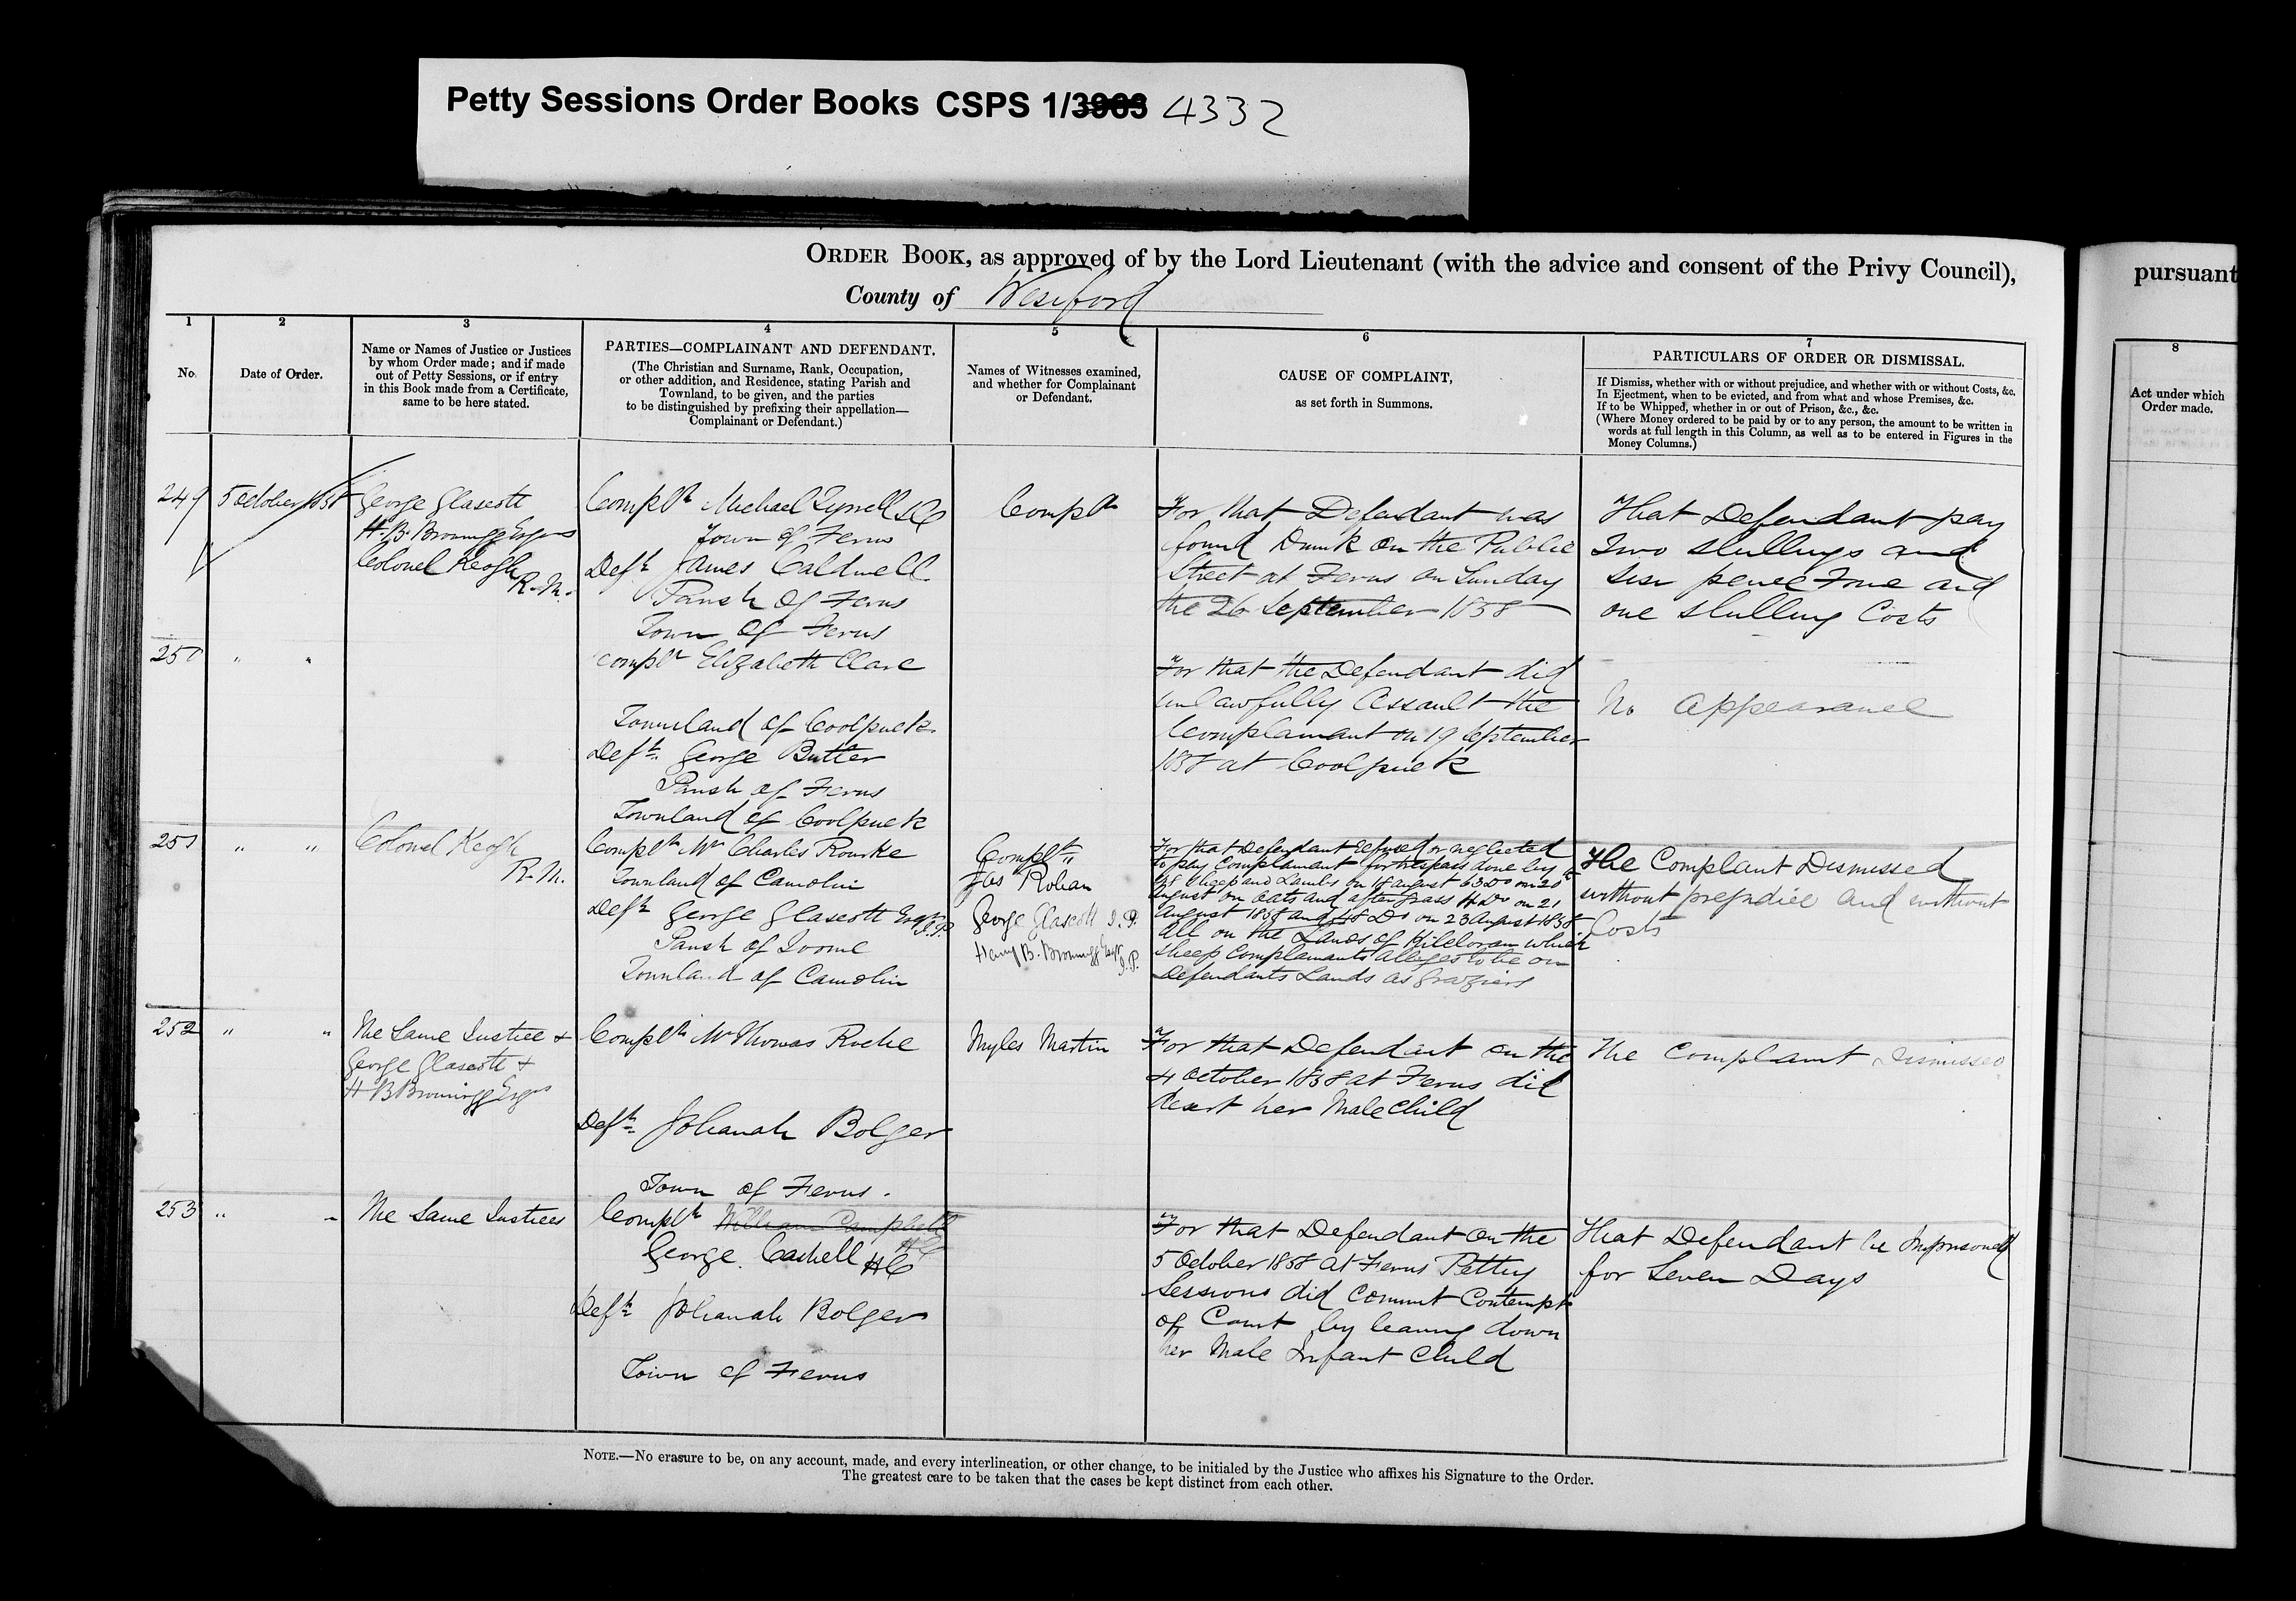 Petty Sessions Order Books CSPS 1/3963 4332
ORDER BOOK, as approved of by the Lord Lieutenant (with the advice and consent of the Privy Council),
County of Wexford
pursuant
1 2 3 4 5 6 7 8
No.
Date of Order.
Name or Names of Justice or Justices
by whom Order made; and if made
out of Petty Sessions, or if entry
in this Book made from a Certificate,
same to be here stated.
PARTIES—COMPLAINANT AND DEFENDANT.
(The Christian and Surname, Rank, Occupation,
or other addition, and Residence, stating Parish and
Townland, to be given, and the parties
to be distinguished by prefixing their appellation—
Complainant or Defendant.)
Names of Witnesses examined,
and whether for Complainant
or Defendant.
CAUSE OF COMPLAINT,
as set forth in Summons.
PARTICULARS OF ORDER OR DISMISSAL.
If Dismiss, whether with or without prejudice, and whether with or without Costs, &c.
In Ejectment, when to be evicted, and from what and whose Premises, &c.
If to be Whipped, whether in or out of Prison, &c., &c.
(Where Money ordered to be paid by or to any person, the amount to be written in
words at full length in this Column, as well as to be entered in Figures in the
Money Columns.)
Act under which
Order made.
249
5 October 1858
George Glascott
H. B. Brownrigg Esqrs
Colonel Keogh
R. M.
Complt Michael Tyrrell
Town of Ferns
Deft James Caldwell
Parish of Ferns
Town of Ferns
Complt
For that Defendant was
found Drunk on the Public
Street at Ferns on Sunday
the 26 September 1858
That Defendant pay
Two shillings and
six pence Fine and
one shilling Costs
250
" "
Complt Elizabeth Clare
Townland of Coolpuck
Deft. George Butler
Parish of Ferns
Townland of Coolpuck
For that the Defendant did
unlawfully Assault the
Complainant on 19 September
1858 at Coolpuck
No appearance
251
" "
Colonel Keogh
R. M.
Complt Mr Charles Rourke
Townland of Camolin
Deft George Glascott Esqr
J.P.
Parish of Toome
Townland of Camolin
Complt
Jas Rohan
George Glascott J. P.
Harry B. Brownrigg Esqr
J.P.
For that Defendant refused or neglected
to pay Complainant for trespass done by
Sheep and Lambs on 18 August 63 Do on 20th
August on oats and after grass Do on 21
August 1858 and 48 Do on 23 August 1858
all on the Lands of Kilcloran which
Sheep Complainants alleges to be on
Defendants Lands as Graziers
The Complaint Dismissed
without prejudice and without
Costs
252
" "
The Same Justice &
George Glascott &
H B Brownrigg Esqrs
Complt Mr Thomas Roche
Deft Johanah Bolger
Town of Ferns.
Myles Martin
For that Defendant on the
4 October 1858 at Ferns did
desert her Male Child
The Complaint Dismissed
253
" "
The Same Justices
Complt William Campbell
HC
George Cashell HC
Deft Johanah Bolger
Town of Ferns
For that Defendant on the
5 October 1858 at Ferns Petty
Sessions did Commit Contempt
of Court by leaving down
her Male Infant Child
That Defendant be Imprisoned
for Seven Days
NOTE.—No erasure to be, on any account, made, and every interlineation, or other change, to be initialed by the Justice who affixes his Signature to the Order.
The greatest care to be taken that the cases be kept distinct from each other.